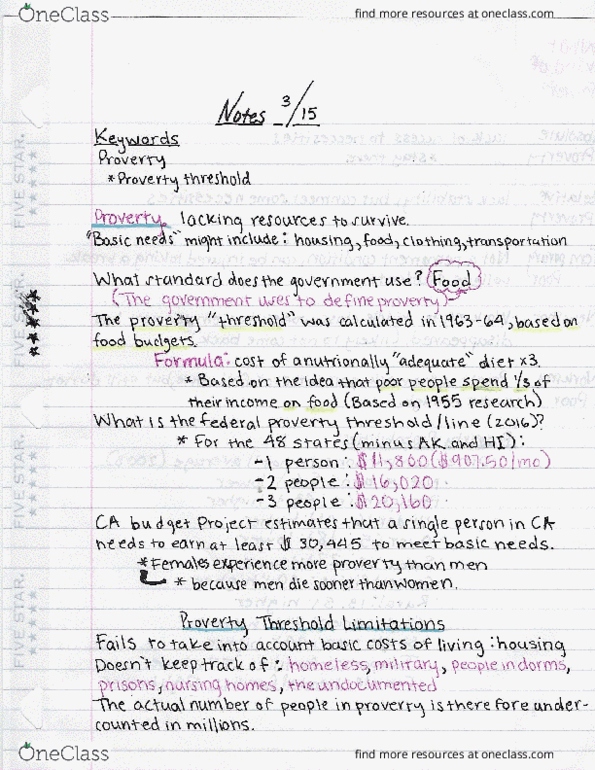 OneClass
find more resources at oneclass.com
Notes 3/15
Keywords
Proverty
*Proverty threshold
Proverty: lacking resources to survive.
"Basic needs" might include: housing, food, clothing, transportation
What standard does the government use? Food
(The government uses to define proverty)
The proverty "threshold" was calculated in 1963-64, based on
food budgets.
Formula: cost of a nutrionally "adequate" diet x3.
* Based on the idea that poor people spend 1/3 of
their income on food (Based on 1955 research)
What is the federal proverty threshold/line (2016)?
* For the 48 states (minus AK and HI):
-1 person: $11,880 ($907.50/mo)
-2 people: $16,020
-3 people: $20,160
CA budget Project estimates that a single person in CA
needs to earn at least $30,445 to meet basic needs.
*Females experience more proverty than men
* because men die sooner than women.
Proverty Threshold Limitations
Fails to take into account basic costs of living: housing
Doesn't keep track of: homeless, military, people in dorms,
prisons, nursing homes, the undocumented
The actual number of people in proverty is there fore under-
counted in millions.
FIVE STAR.
FIVE STAR.
FIVE STAR.
FIVE STAR.
OneClass
find more resources at oneclass.com